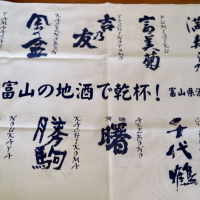 満寿泉
富美菊
FUMIGIKU
吉乃友
YOSHINOTOMO
風の盆
KAZENOBON
富山の地酒で乾杯!
富山県酒
千代鶴
曙
AKEBONO
勝駒
KACHIKOMA